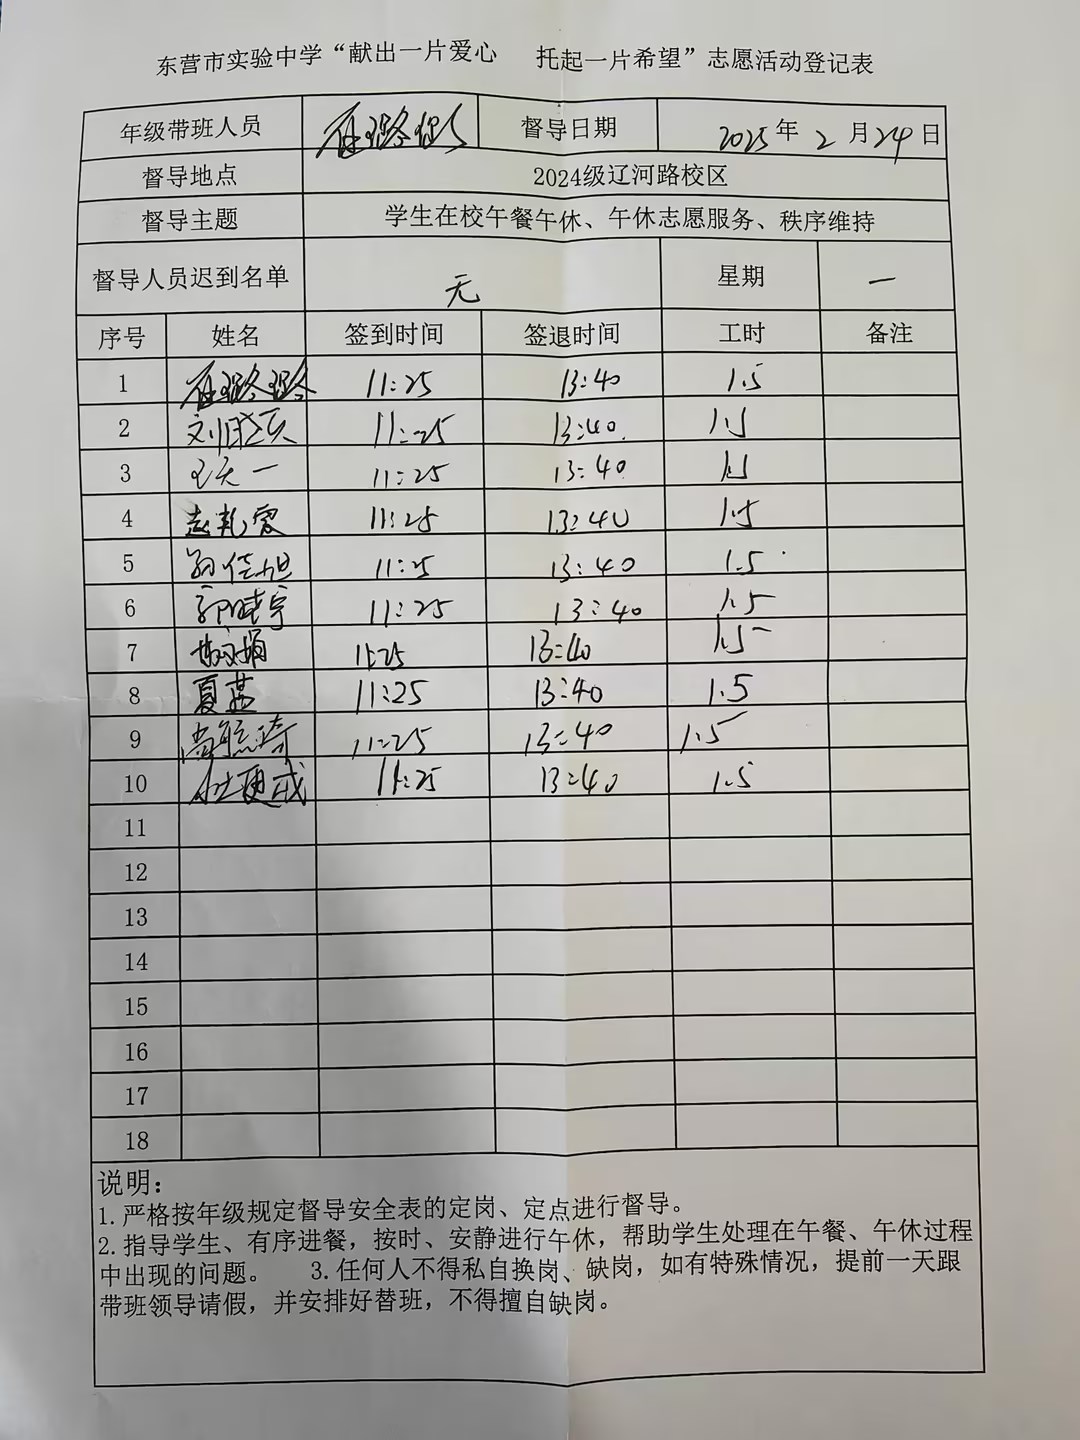 东营市实验中学“献出一片爱心 托起一片希望”志愿活动登记表
年级带班人员 督导日期 2025年2月24日
督导地点 2024级辽河路校区
督导主题 学生在校午餐午休、午休志愿服务、秩序维持
督导人员迟到名单 无 星期 一
序号 姓名 签到时间 签退时间 工时 备注
1 11:25 13:40 1.5
2 11:25 13:40 1.5
3 王天一 11:25 13:40 1.5
4 11:25 13:40 1.5
5 11:25 13:40 1.5
6 郭晓宇 11:25 13:40 1.5
7 11:25 13:40 1.5
8 夏燕 11:25 13:40 1.5
9 11:25 13:40 1.5
10 11:25 13:40 1.5
11
12
13
14
15
16
17
18
说明：
1.严格按年级规定督导安全表的定岗、定点进行督导。
2.指导学生、有序进餐，按时、安静进行午休，帮助学生处理在午餐、午休过程
中出现的问题。 3.任何人不得私自换岗、缺岗，如有特殊情况，提前一天跟
带班领导请假，并安排好替班，不得擅自缺岗。